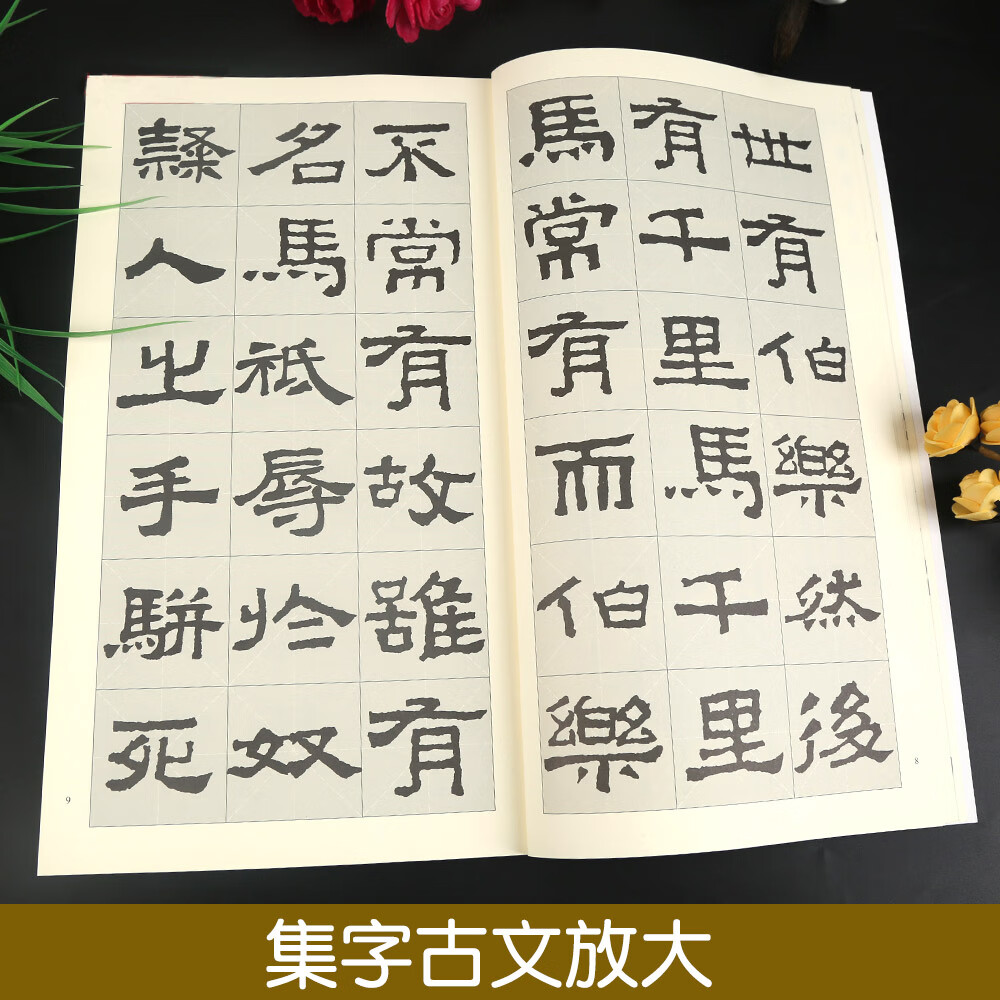 世有伯樂然後
有千里馬千里
馬常有而伯樂
8
不常有故雖有
名馬祗辱於奴
隸人之手駢死
9
集字古文放大